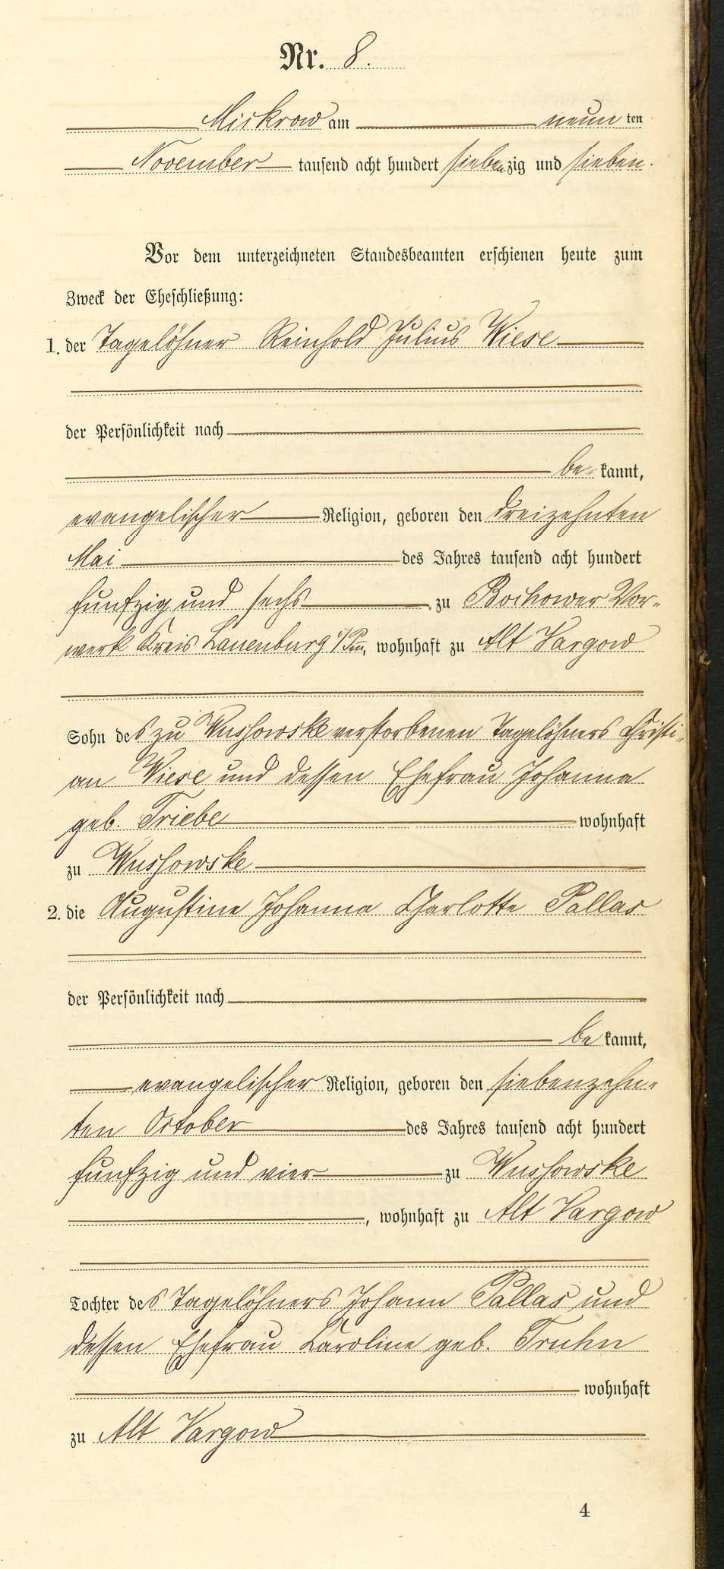 Nr. 8.
Mickrow am neun ten
November tausend acht hundert siebenzig und sieben.
Vor dem unterzeichneten Standesbeamten erschienen heute zum
Zweck der Eheschließung:
1. der Tagelöhner Reinhold Julius Wiese
der Persönlichkeit nach
be kannt,
evangelischer Religion, geboren den dreizehnten
Mai des Jahres tausend acht hundert
funfzig und sechs zu Bochower Vor-
werk Kreis Lauenburg i/Pom, wohnhaft zu Alt Vargow
Sohn des zu Wussowske verstorbenen Tagelöhners Christi-
an Wiese und dessen Ehefrau Johanna
geb. Triebe wohnhaft
zu Wussowske
2. die Augustine Johanna Charlotte Pallas
der Persönlichkeit nach
be kannt,
evangelischer Religion, geboren den siebenzehn-
ten October des Jahres tausend acht hundert
funfzig und vier zu Wussowske
, wohnhaft zu Alt Vargow
Tochter des Tagelöhners Johann Pallas und
dessen Ehefrau Karoline geb. Truhn
wohnhaft
zu Alt Vargow
4